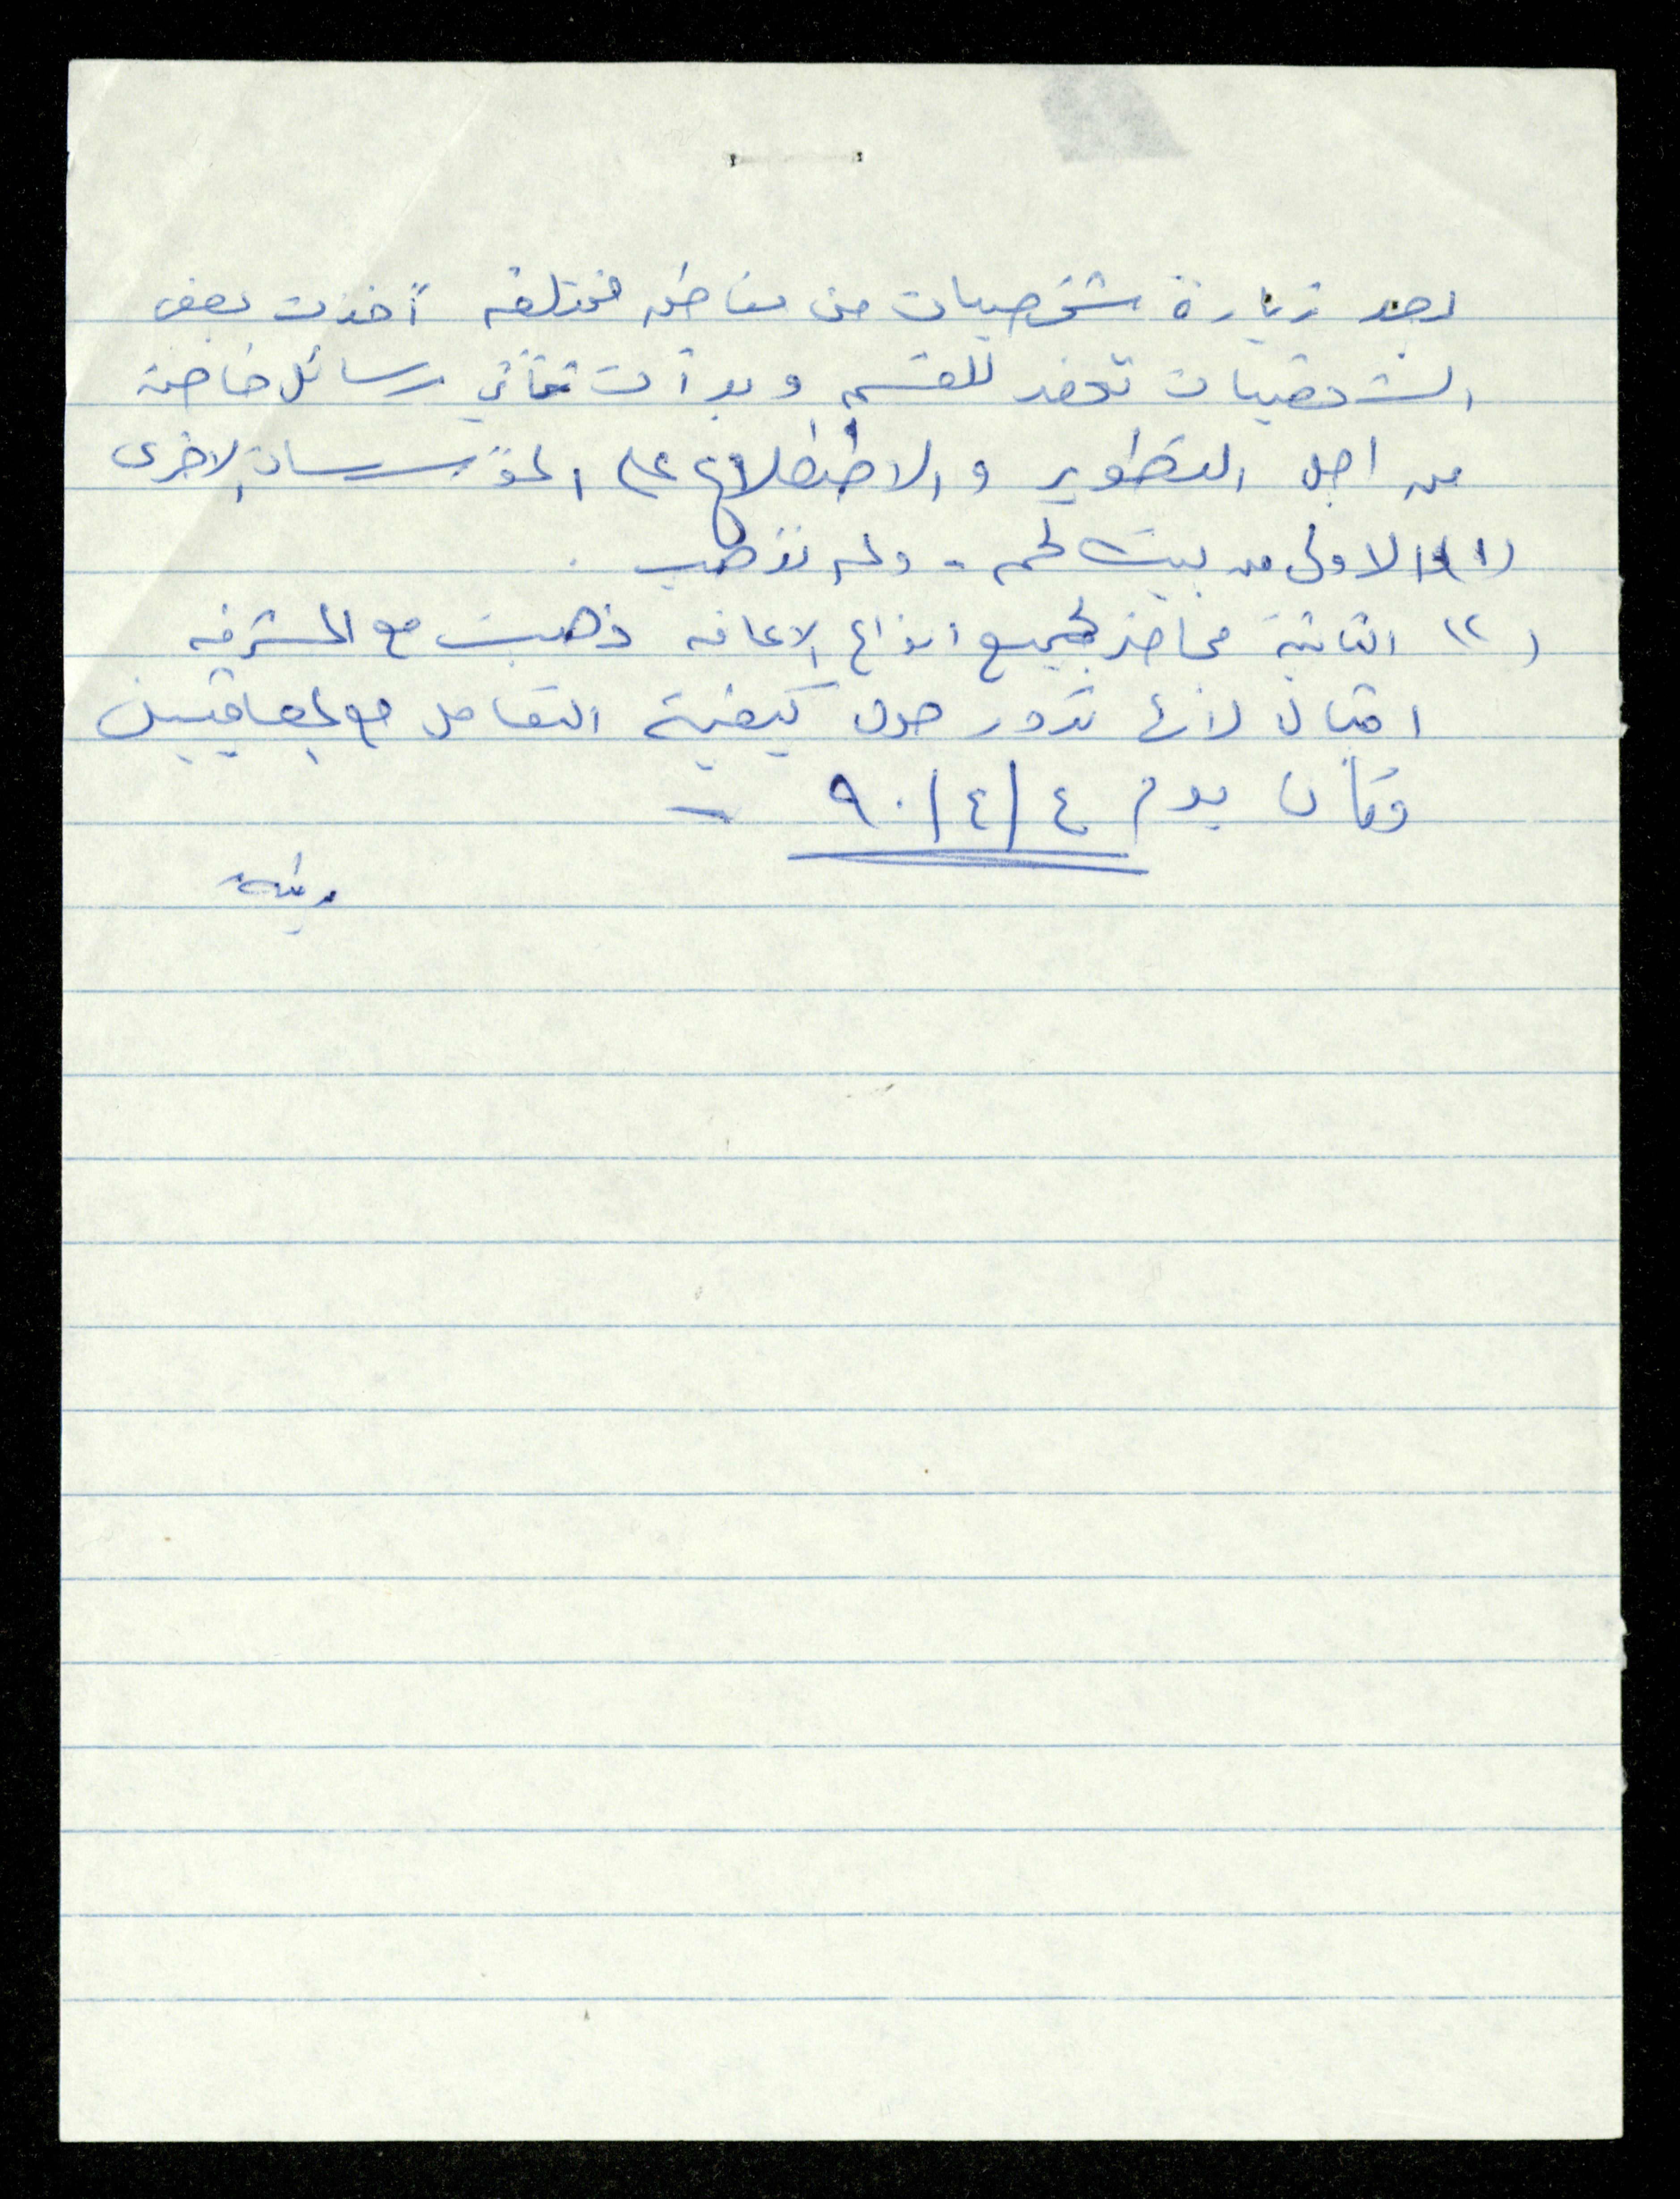 بعد زيارة شخصيات من مناطق مختلفه أخذت بعض
الشخصيات تحضر للقسم وبدأت تأتي رسائل خاصة
من اجل التطوير والاطلاع على المؤسسات الاخرى
(١) الاولى من بيت لحم - ولم نذهب .
(٢) الثانية محاضر لجميع انواع الاعاقه ذهبت مع المشرفه
امتال لانها تدور حول كيفية التعامل مع المعاقيين
وكان يوم ٤/٤/٩٠ -